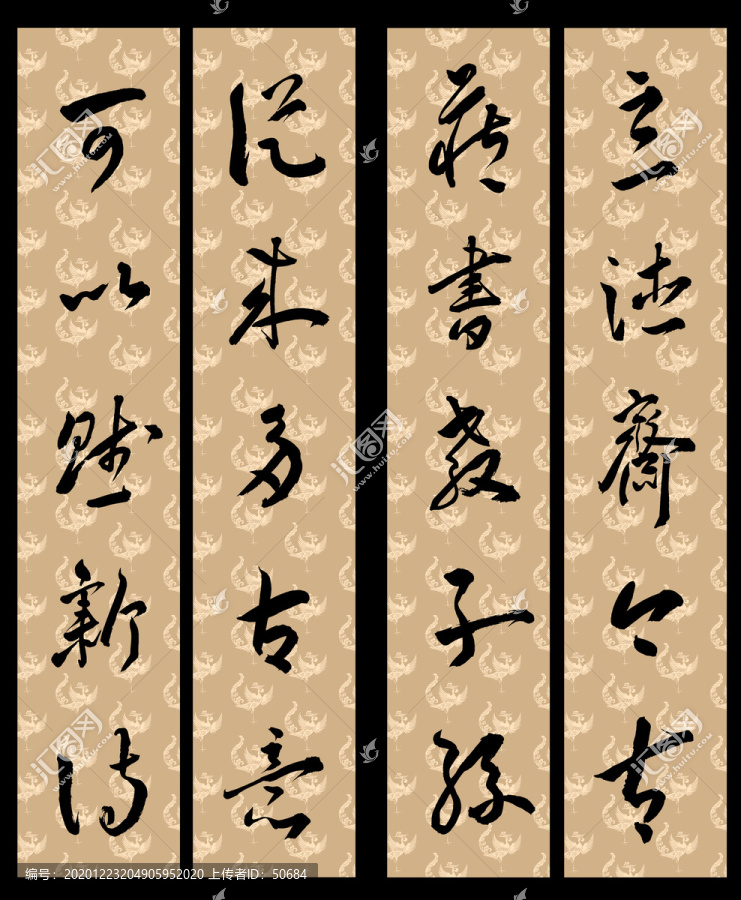 立德齊今古
藏書教子孫
從來多古意
可以賦新詩
汇图网
www.huitu.com
编号：20201223204905952020 上传者ID：50684